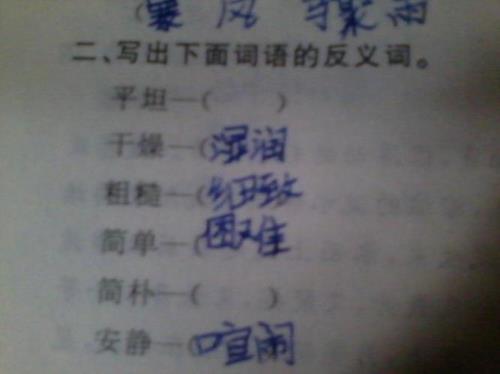 (暴风 与聚雨
二、写出下面词语的反义词。
平坦—( )
干燥—(湿润
粗糙—(细致
简单—(困难
简朴—( )
安静—(喧闹